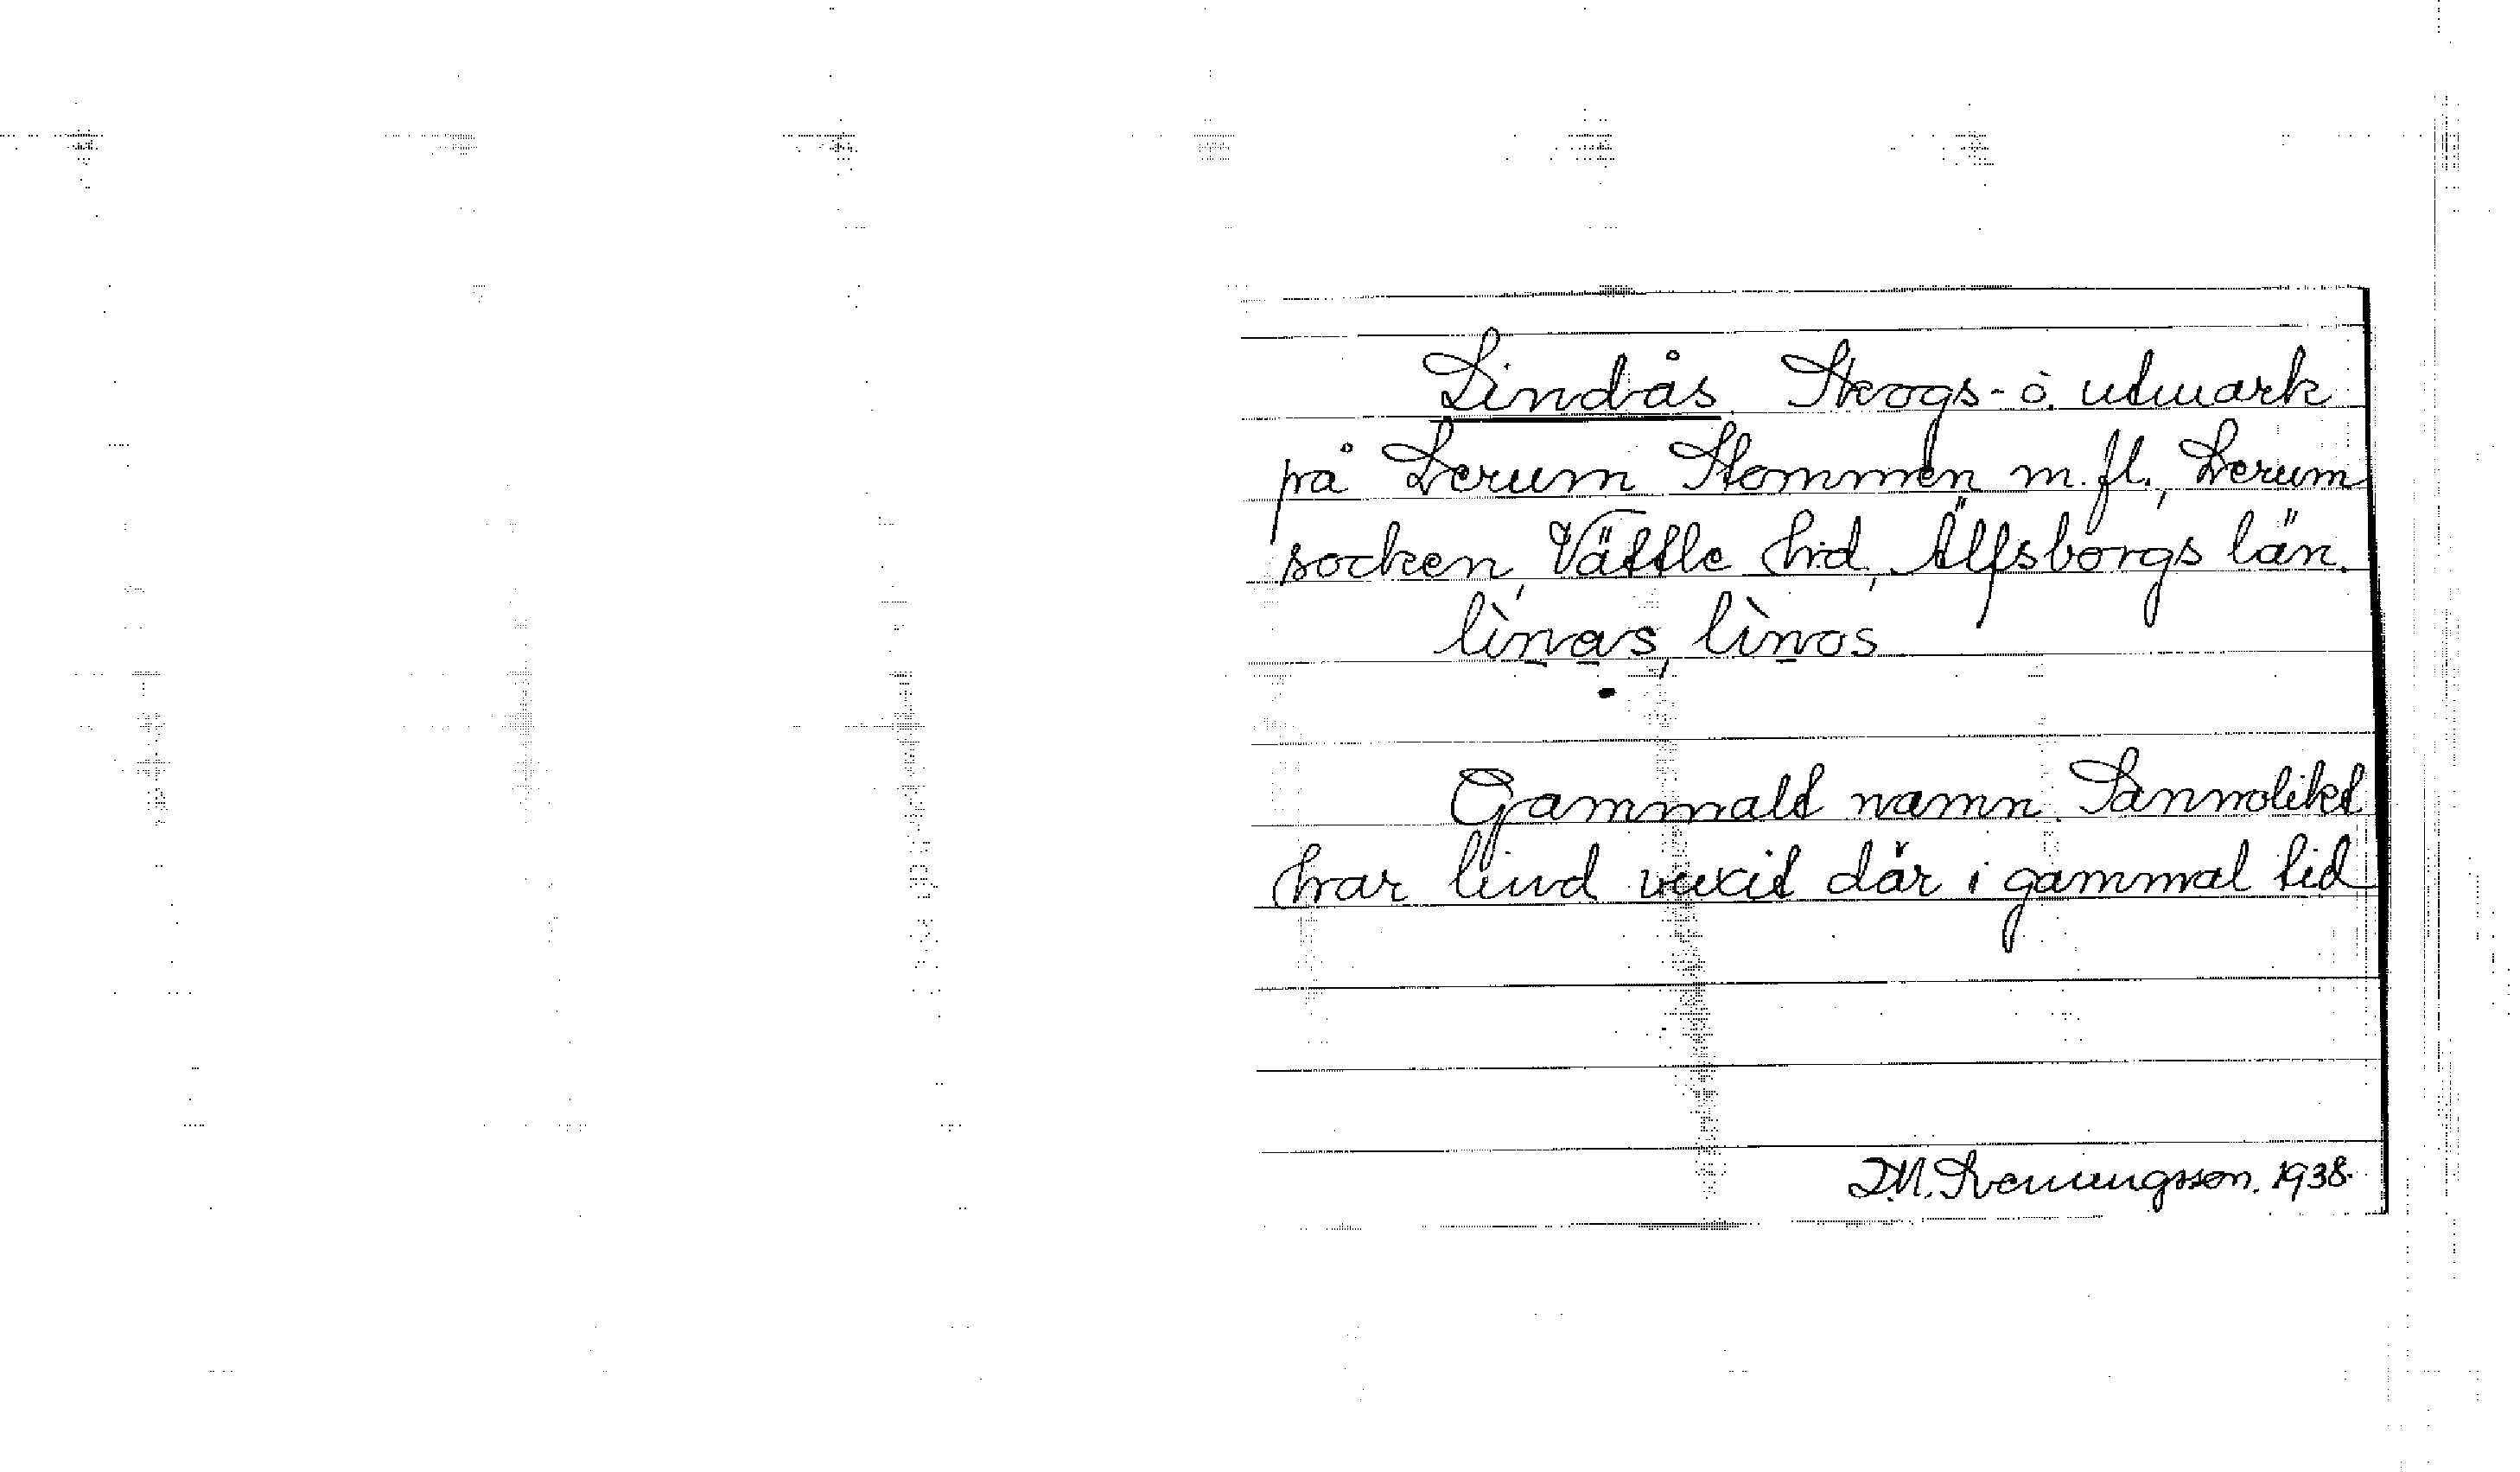 Lindås Skogs- o. utmark
på Lerum Stommen m.fl., Lerum
socken, Vättle hd, Älfsborgs län.
lìnas, lìnos
Gammalt namn. Sannolikt
har lind vuxit där i gammal tid
1938.